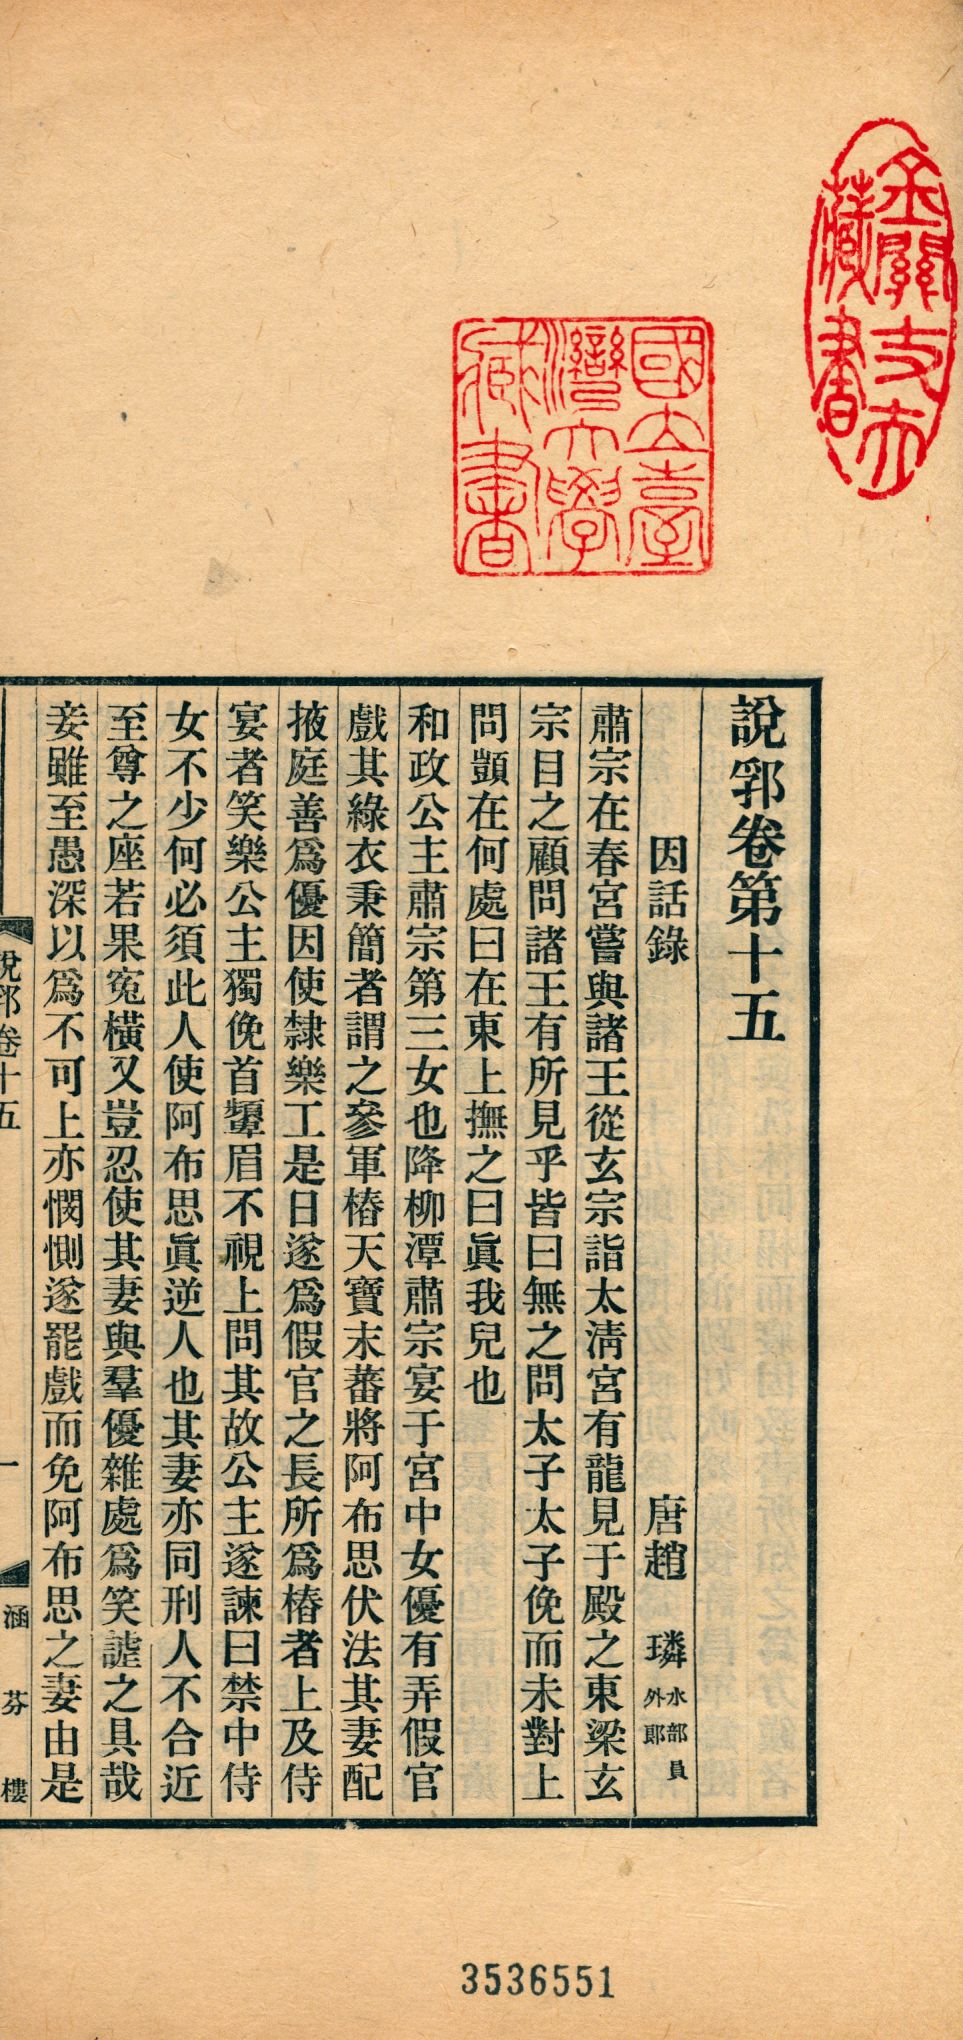 金關丈夫
藏書
國立臺
灣大學
藏書
說郛卷第十五
因話錄 唐趙 璘 水部員外郎
肅宗在春宮嘗與諸王從玄宗詣太淸宮有龍見于殿之東梁玄
宗目之顧問諸王有所見乎皆曰無之問太子太子俛而未對上
問顗在何處曰在東上撫之曰眞我兒也
和政公主肅宗第三女也降柳潭肅宗宴于宮中女優有弄假官
戲其綠衣秉簡者謂之參軍樁天寶末蕃將阿布思伏法其妻配
掖庭善爲優因使隸樂工是日遂爲假官之長所爲樁者上及侍
宴者笑樂公主獨俛首顰眉不視上問其故公主遂諫曰禁中侍
女不少何必須此人使阿布思眞逆人也其妻亦同刑人不合近
至尊之座若果寃橫又豈忍使其妻與羣優雜處爲笑謔之具哉
妾雖至愚深以爲不可上亦憫惻遂罷戲而免阿布思之妻由是
說郛卷十五 一 涵芬樓
3536551